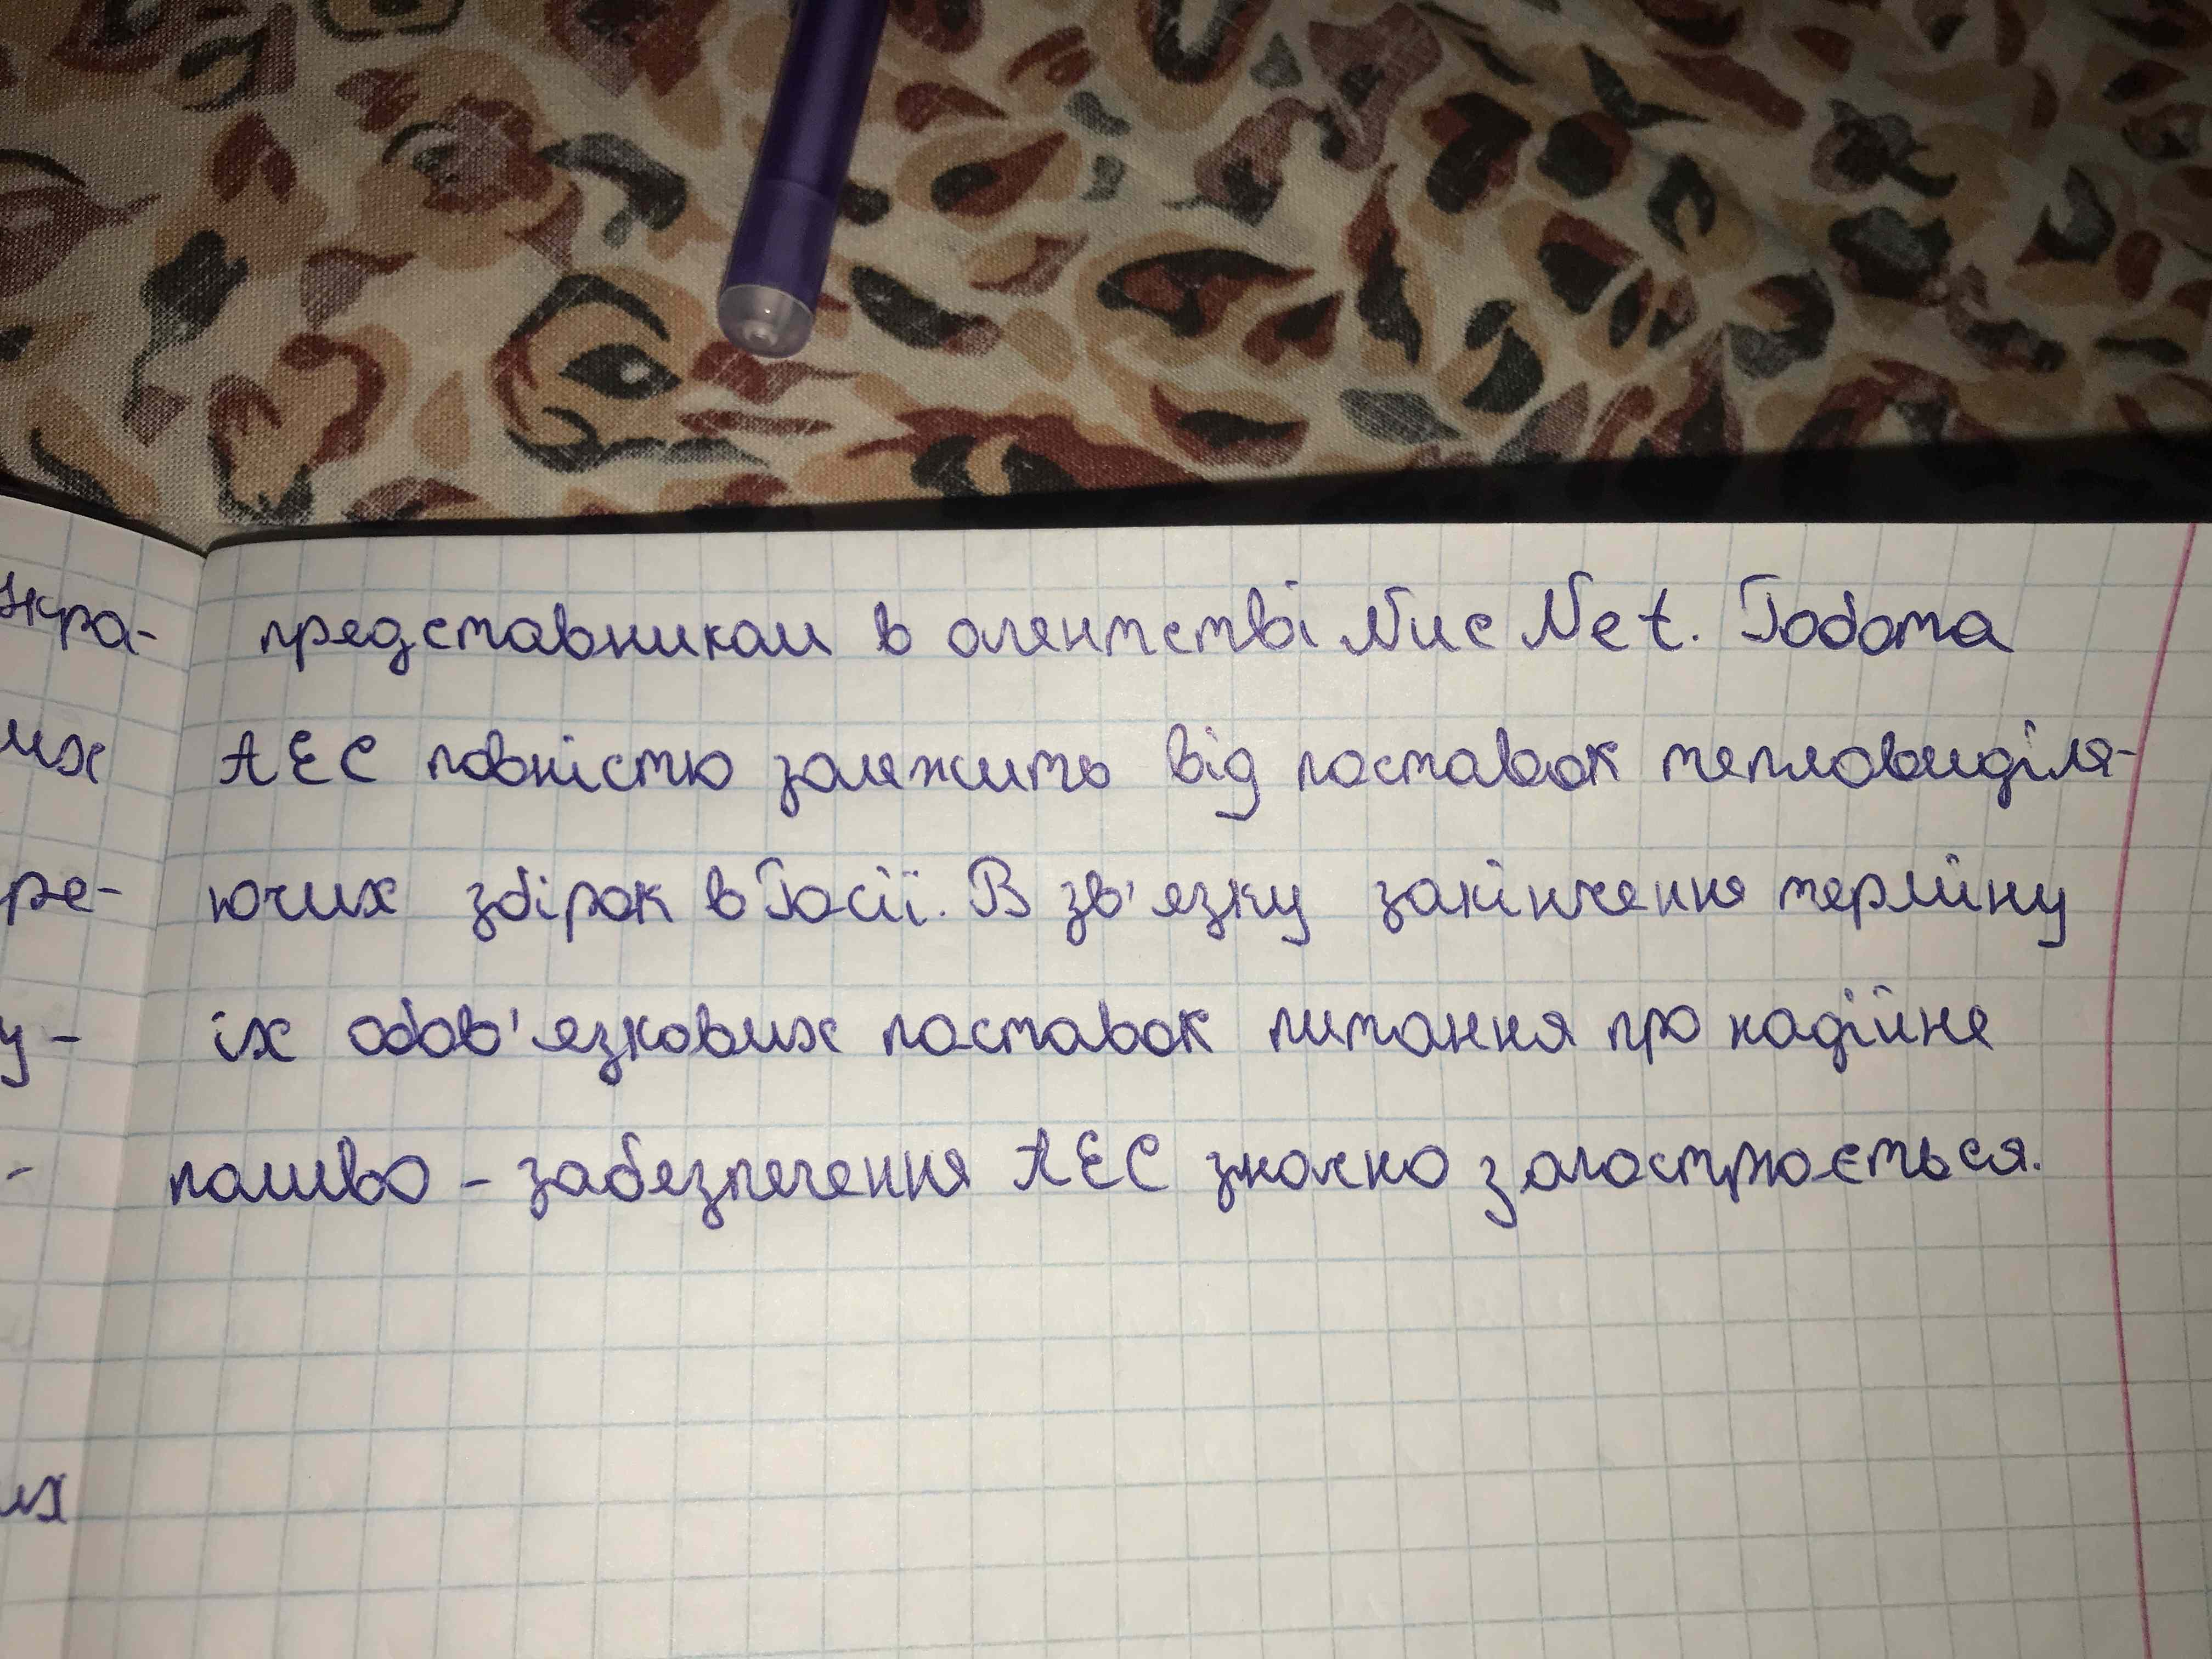 кра-
представникам в агентстві Nuc Net. Робота
их
АЕС повністю залежить від поставок тепловиділя-
ре-
ючих збірок в Росії. В зв'язку закінчення терміну
у-
їх обов'язкових поставок питання про надійне
-
паливо - забезпечення АЕС значно загострюється.
их